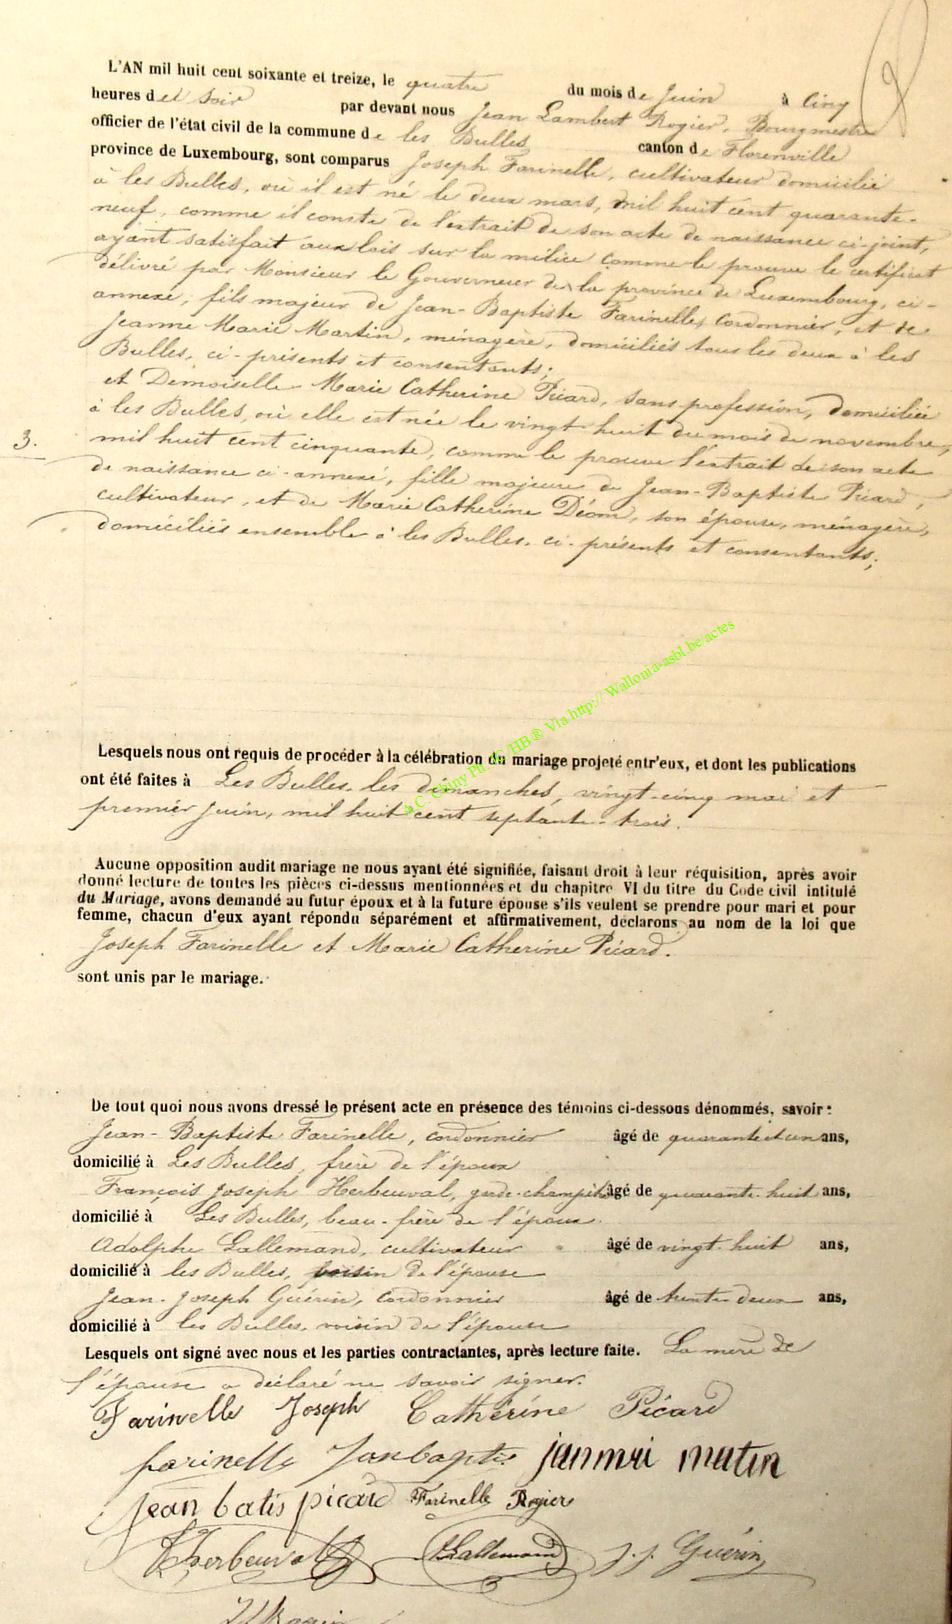 L'AN mil huit cent soixante et treize, le quatre du mois de Juin à cinq
heures du soir par devant nous Jean Lambert Rogier, Bourgmestre
officier de l'état civil de la commune de les Bulles canton de Florenville
province de Luxembourg, sont comparus Joseph Farinelle, cultivateur domicilié
à les Bulles, où il est né le deux mars, mil huit cent quarante-
neuf, comme il conste de l'extrait de son acte de naissance ci-joint,
ayant satisfait aux lois sur la milice comme le prouve le certificat
délivré par Monsieur le Gouverneur de la province de Luxembourg, ci-
annexé; fils majeur de Jean-Baptiste Farinelle, cordonnier, et de
Jeanne Marie Martin, ménagère, domiciliés tous les deux à les
Bulles, ci-présents et consentants;
et Demoiselle Marie Catherine Picard, sans profession, domiciliée
à les Bulles, où elle est née le vingt-huit du mois de novembre,
3.
mil huit cent cinquante, comme le prouve l'extrait de son acte
de naissance ci-annexé, fille majeure de Jean-Baptiste Picard,
cultivateur, et de Marie Catherine Déom, son épouse, ménagère,
domiciliés ensemble à les Bulles, ci-présents et consentants;
A.C. Chiny Ph. JG/HB® Via http:// Wallonia-asbl.be/actes
Lesquels nous ont requis de procéder à la célébration du mariage projeté entr'eux, et dont les publications
ont été faites à Les Bulles, les dimanches, vingt-cinq mai et
premier juin, mil huit cent septante-trois.
Aucune opposition audit mariage ne nous ayant été signifiée, faisant droit à leur réquisition, après avoir
donné lecture de toutes les pièces ci-dessus mentionnées et du chapitre VI du titre du Code civil intitulé
du Mariage, avons demandé au futur époux et à la future épouse s'ils veulent se prendre pour mari et pour
femme, chacun d'eux ayant répondu séparément et affirmativement, déclarons au nom de la loi que
Joseph Farinelle et Marie Catherine Picard.
sont unis par le mariage.
De tout quoi nous avons dressé le présent acte en présence des témoins ci-dessous dénommés, savoir :
Jean-Baptiste Farinelle, cordonnier âgé de quarante et un ans,
domicilié à Les Bulles, frère de l'époux
François Joseph Herbeuval, garde-champêtre âgé de quarante-huit ans,
domicilié à Les Bulles, beau-frère de l'époux.
Adolphe Lallemand, cultivateur âgé de vingt-huit ans,
domicilié à les Bulles, voisin de l'épouse
Jean-Joseph Guérin, cordonnier âgé de trente-deux ans,
domicilié à les Bulles, voisin de l'épouse
Lesquels ont signé avec nous et les parties contractantes, après lecture faite. La mère de
l'épouse a déclaré ne savoir signer.
Farinelle Joseph Cathérine Picard
farinelle Janbaptis janmri matin
jean batis picard Farinelle Rogier
Herbeuval Lallemand J. J. Guérin
Rogier